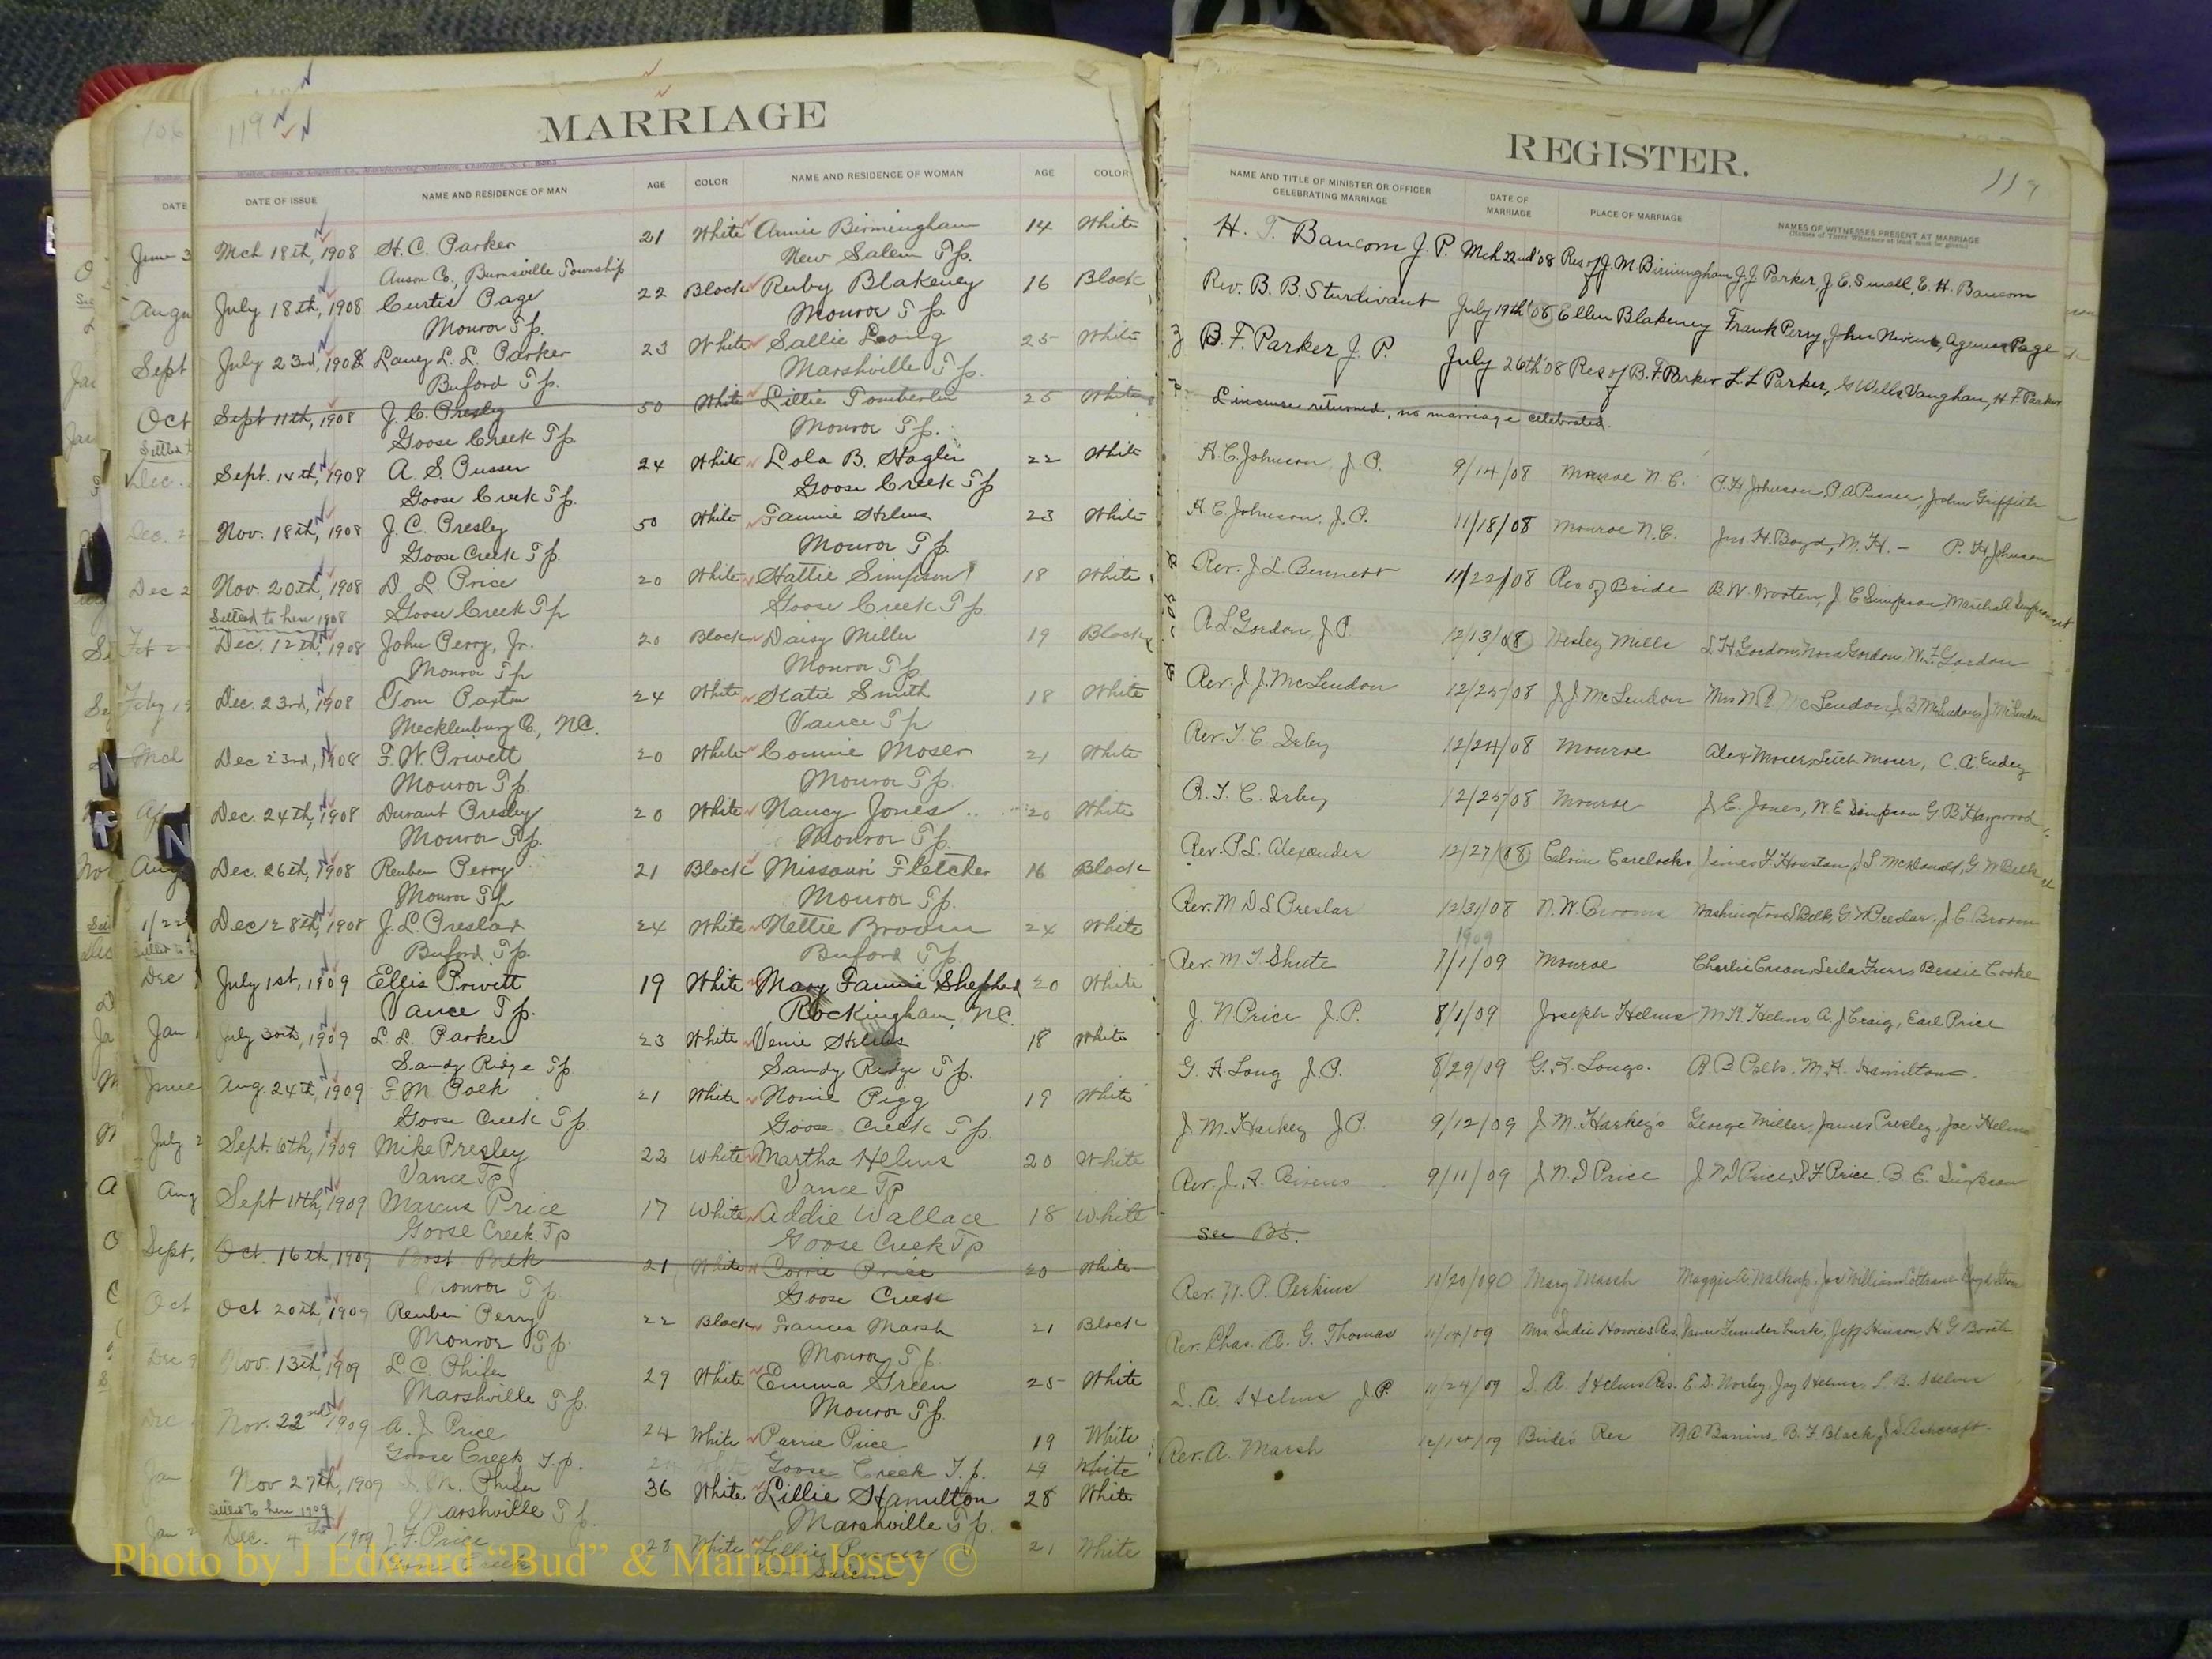 119
MARRIAGE
DATE OF ISSUE NAME AND RESIDENCE OF MAN AGE COLOR NAME AND RESIDENCE OF WOMAN AGE COLOR
Mch 18th, 1908 H. C. Parker 21 White Annie Birmingham 14 White
Anson Co., Burnsville Township New Salem Tp.
July 18th, 1908 Curtis Page 22 Black Ruby Blakeney 16 Black
Monroe Tp. Monroe Tp.
July 23rd, 1908 Laney L. L. Parker 23 White Sallie Long 25 White
Buford Tp. Marshville Tp.
Sept 11th, 1908 J. C. Presley 50 White Lillie Tomberlin 25 White
Goose Creek Tp Monroe Tp.
Sept. 14th, 1908 A. S. Pusser 24 White Lola B. Hagler 22 White
Goose Creek Tp. Goose Creek Tp
Nov. 18th, 1908 J. C. Presley 50 White Fannie Helms 23 White
Goose Creek Tp. Monroe Tp.
Nov. 20th, 1908 D. L. Price 20 White Hattie Simpson 18 White
Settled to here 1908 Goose Creek Tp Goose Creek Tp.
Dec. 12th, 1908 John Perry, Jr. 20 Black Daisy Miller 19 Black
Monroe Tp Monroe Tp
Dec. 23rd, 1908 Tom Paxton 24 White Katie Smith 18 White
Mecklenburg Co, N.C. Vance Tp
Dec 23rd, 1908 F. W. Privett 20 White Connie Moser 21 White
Monroe Tp. Monroe Tp.
Dec. 24th, 1908 Durant Presley 20 White Nancy Jones 20 White
Monroe Tp. Monroe Tp.
Dec. 26th, 1908 Reuben Perry 21 Black Missouri Fletcher 16 Black
Monroe Tp Monroe Tp.
Dec 28th, 1908 J. L. Preslar 24 White Nettie Broom 24 White
Buford Tp. Buford Tp.
July 1st, 1909 Ellis Privett 19 White Mary Fannie Shepherd 20 White
Vance Tp. Rockingham, N.C.
July 30th, 1909 L. L. Parker 23 White Venie Helms 18 White
Sandy Ridge Tp. Sandy Ridge Tp.
Aug. 24th, 1909 F. M. Polk 21 White Nonie Pigg 19 White
Goose Creek Tp. Goose Creek Tp.
Sept. 6th, 1909 Mike Presley 22 White Martha Helms 20 White
Vance Tp Vance Tp
Sept 11th, 1909 Marcus Price 17 White Addie Wallace 18 White
Goose Creek Tp Goose Creek Tp
Oct. 16th, 1909 21 White Corrie Price 20 White
Monroe Tp. Goose Creek
Oct 20th, 1909 Reuben Perry 22 Black Frances Marsh 21 Black
Monroe Tp. Monroe Tp
Nov. 13th, 1909 L. C. Phifer 29 White Emma Green 25 White
Marshville Tp. Monroe Tp.
Nov. 22nd, 1909 A. J. Price 24 White Price 19 White
Goose Creek T.p. Goose Creek T.p. 19 White
Nov 27th, 1909 Phifer 36 White Lillie Hamilton 28 White
Settled to here 1909 Marshville Tp. Marshville Tp.
Dec. 4th, 1909 J. F. Price 28 White Lillie 21 White
Photo by J Edward “Bud” & Marion Josey ©
REGISTER.
119
NAME AND TITLE OF MINISTER OR OFFICER CELEBRATING MARRIAGE DATE OF MARRIAGE PLACE OF MARRIAGE NAMES OF WITNESSES PRESENT AT MARRIAGE
H. T. Baucom J. P. Mch 22nd '08 Res of J. M Birmingham J. J. Parker, J. E. Small, E. H. Baucom
Rev. B. B. Sturdivant July 19th '08 Ellen Blakeney Frank Perry, John Nivens, Page
B. F. Parker J. P. July 26th '08 Res of B. F. Parker L. L Parker, G Wells Vaughan, H F Parker
Lincense returned, no marriage celebrated.
H. C. Johnson, J. P. 9/14/08 Monroe N. C. P. H Johnson, P. A Pusser, John Griffith
H C Johnson, J. P. 11/18/08 Monroe N. C. Jno. H. Boyd, M. H. – P. H Johnson
Rev. J. L. Bennett 11/22/08 Res of Bride B. W. Wooten, J C Simpson, Marshal Simpson
A L Gordon, J P. 12/13/08 Wesley Mills S. H Gordon, Nora Gordon, W. F Gordon
Rev. J. J. McLendon 12/25/08 J J McLendon Mrs McLendon
Rev. T. C. Irby 12/24/08 Monroe Alex Moser, Moser, C. A. Eudey
R. T. C. Irby 12/25/08 Monroe J. E. Jones, W. E Simpson G. B. Haywood
Rev. P. L. Alexander 12/27/08 Calvin Carelocks James F. Houston, J. S. McDonald, G. W Belk
Rev. M D L Preslar 12/31/08 N. W. Brooms Washington S Belk, G. W Preslar, J. C. Broom
1909
Rev. M. T. Shute 7/1/09 Monroe Charlie Cason, Leila Furr, Bessie Cooke
J. N Price J. P. 8/1/09 Joseph Helms M. K. Helms, A. J Craig, Earl Price
G. H Long J. P. 8/29/09 G. H. Longs. R. B Polk, M. H. Hamilton
J M. Harkey J. P. 9/12/09 J. M. Harkey's George Miller, James Presley, Joe Helms
Rev. J. A. Bivens 9/11/09 J. N. D Price J. N D Price, S. F Price, B. E. Simpson
see B's.
Rev. W. P. Perkins 10/20/09 Mary Marsh
Rev. Chas. A. G. Thomas 11/14/09 Mrs Sadie Howie's Res. Funderburk, Jeff Hinson, H G Booth
S. A. Helms J. P. 11/24/09 S. A. Helms Res. Jay Helms, L. B. Helms
Rev. A. Marsh Bride's Res B. F. Black, J. S Ashcraft